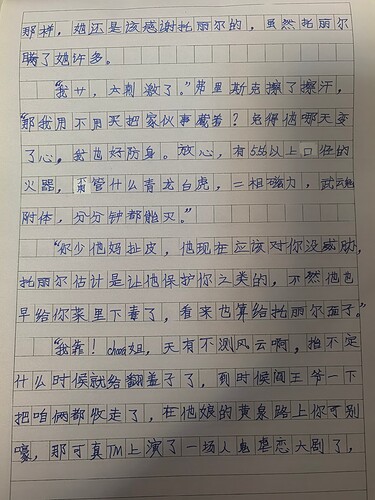 那样，她还是该感谢托丽尔的，虽然托丽尔
瞒了她许多。
“我艹，太刺激了。”弗里斯克擦了擦汗，
“那我用不用买把家伙事藏着？免得他哪天变
了心，我也好防身。放心，有556以上口径的
火器，管什么青龙白虎，二相磁力，武魂
附体，分分钟都能灭。”
“你少他妈扯皮，他现在应该对你没威胁，
托丽尔估计是让他保护你之类的，不然他也
早给你菜里下毒了，看来也算给托丽尔面子。”
“我靠！chara姐，天有不测风云啊，指不定
什么时候就给翻盖子了，到时候阎王爷一下
把咱俩都收走了，在他娘的黄泉路上你可别
嚎，那可真TM上演了一场人鬼虐恋大剧了，